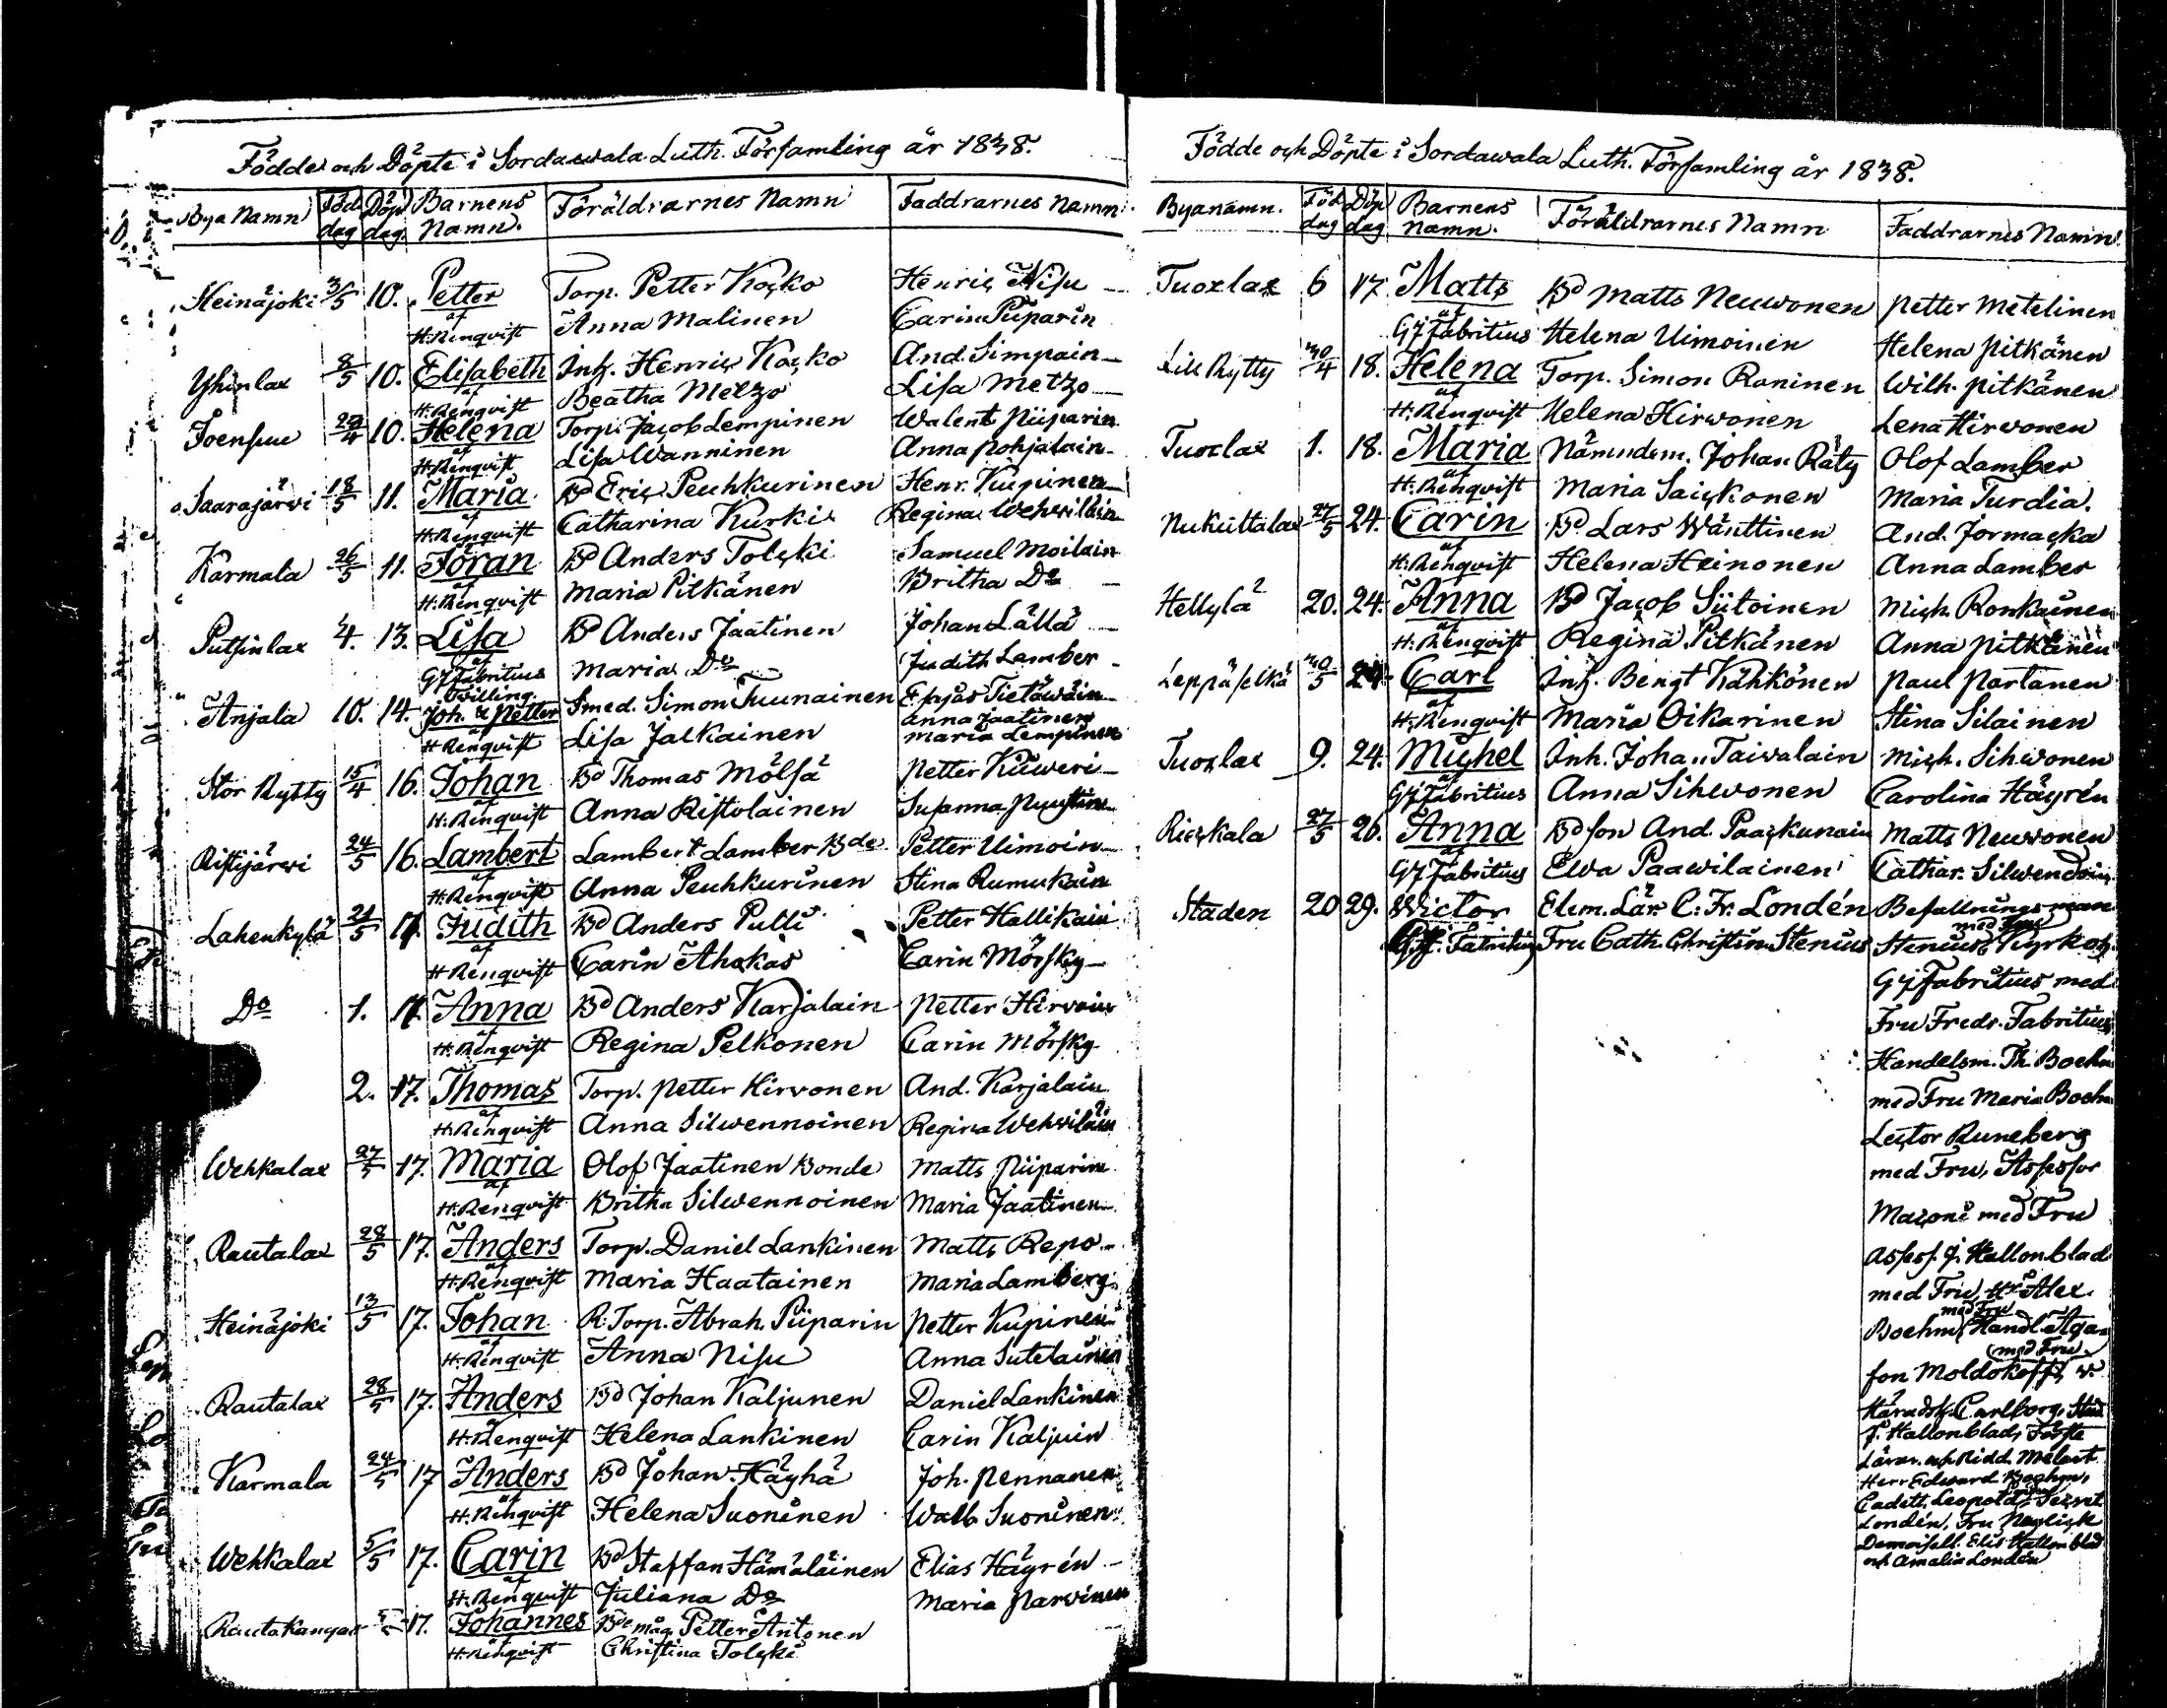 Födde och Döpte i Sordawala Luth. Församling år 1838.
Bya Namn Föd. dag Döp dag. Barnens Namn. Föräldrarnes Namn Faddrarnes Namn.
Heinäjoki 3/5 10. Petter Torp. Petter Kocko Henric Nisu
af H. Renqvist Anna Malinen Carin Piiparin
Yhinlax 8/5 10. Elisabeth Inh. Henric Kocko And. Simpain
af H. Renqvist Beatha Metzo Lisa Metzo
Joensuu 29/4 10. Helena Torp. Jacob Lempinen Walent Piiparin
af H. Renqvist Lisa Wanninen Anna Pohjalain
Saarajärvi 18/5 11. Maria Bd Eric Peuhkurinen Henr. Kiipinen
af H. Renqvist Catharina Kurki Regina Wehviläin
Karmala 26/5 11. Göran Bd Anders Tolcki Samuel Moilain
af H. Renqvist Maria Pitkänen Britha Do
Putsinlax 4. 13. Lisa Bd Anders Jaatinen Johan Lällä
af GJ Fabritius Maria Do Judith Lamber
Anjala 10. 14. Tvilling. Joh. & Petter Smed. Simon Tuunainen Esajas Tietäwäin
H Renqvist Lisa Jalkainen Anna Jaatinen
Maria Lempinen
Stor Rytty 15/4 16. Johan Bd Thomas Mölsä Petter Kiiweri
af H. Renqvist Anna Ristolainen Susanna
Ristijärwi 24/5 16. Lambert Lambert Lamber Bde Petter Uimoin
af H. Renqvist Anna Peuhkurinen Stina Rumukain
Lahenkylä 21/5 17. Judith Bd Anders Pulli Petter Hallikain
af H Renqvist Carin Ahokas Carin Mörsky
Do 1. 17. Anna Bd Anders Karjalain Petter Hirvoin
af H. Renqvist Regina Pelkonen Carin Mörsky
2. 17. Thomas Torp. Petter Hirvonen And. Karjalain
af H. Renqvist Anna Silwennoinen Regina Wehviläin
Wehkalax 27/5 17. Maria Olof Jaatinen Bonde Matts Piiparin
af H. Renqvist Britha Silwennoinen Maria Jaatinen
Rautalax 28/5 17. Anders Torp. Daniel Lankinen Matts Repo
af H. Renqvist Maria Haatainen Maria Lamberg
Heinäjoki 13/5 17. Johan R. Torp. Abrah. Piiparin Petter Kiipinen
af H. Renqvist Anna Nisu Anna Sutelainen
Rautalax 28/5 17. Anders Bd Johan Kaljunen Daniel Lankinen
af H. Renqvist Helena Lankinen Carin Kaljuin
Karmala 24/5 17 Anders Bd Johan Häyhä Joh. Pennanen
af H. Renqvist Helena Suoninen Walb Suoninen
Wehkalax 5/5 17. Carin Bd Staffan Hämäläinen Elias Häyrén
af H. Renqvist Juliana Do Maria Parvinen
Rautakangas 17. Johannes Bde måg Petter Antonen
H. Renqvist Christina Tolcki
Födde och Döpte i Sordawala Luth. Församling år 1838.
Byanamn. Föd dag Döp dag Barnens namn. Föräldrarnes Namn Faddrarnes Namn
Tuoxlax 6 17 Matts Bd Matts Neuwonen Petter Metelinen
af GJ Fabritius Helena Uimoinen Helena Pitkänen
Lill Rytty 30/4 18. Helena Torp. Simon Raninen Wilh. Pitkänen
af H. Renqvist Helena Hirwonen Lena Hirvonen
Tuoxlax 1. 18. Maria Nämndem. Johan Räty Olof Lamber
af H. Renqvist Maria Saickonen Maria Turdia.
Nukuttalax 27/5 24. Carin Bd Lars Wänttinen And. Jormacka
af H. Renqvist Helena Heinonen Anna Lamber
Hellylä 20. 24. Anna Bd Jacob Siitoinen Mich. Ronkainen
af H. Renqvist Regina Pitkänen Anna Pitkänen
Leppäselkä 30/5 24. Carl Inh. Bengt Kähkönen Paul Partanen
af H. Renqvist Maria Oikarinen Stina Silainen
Tuoxlax 9. 24. Michel Inh. Johan Taiwalain Mich. Sihwonen
af GJ Fabritius Anna Sihwonen Carolina Häyrén
Rieckala 27/5 26. Anna Bd son And. Paackunain Matts Neuwonen
af GJ Fabritius Elva Paawilainen Cathar. Silwendoin
Staden 20 29. Wictor Elem. Lär. C. Fr. Londén Befallningsman
GJ. Fabritius Fru Cath. Christina Stenius Stenius med Fru Kyrkoh.
GJ Fabritius med
Fru Fredr. Fabritius
Handelsm. Th. Boehm
med Fru Maria Boehm
Lector Runeberg
med Fru, Assessor
Maconi med Fru
Assess. J. Hallonblad
med Fru, Hr Alex.
Boehm med Fru Handl. Aga-
fon Moldokoff, med Fru v.
Häradsh. Carlborg, Stud
J. Hallonblad, Förste
Lärar. och Ridd. Melart
Herr Edward Boehm,
Cadett. Leopold Secret.
Londén, Fru
Demoisell. Elis Hallonblad
och Amalia Londén